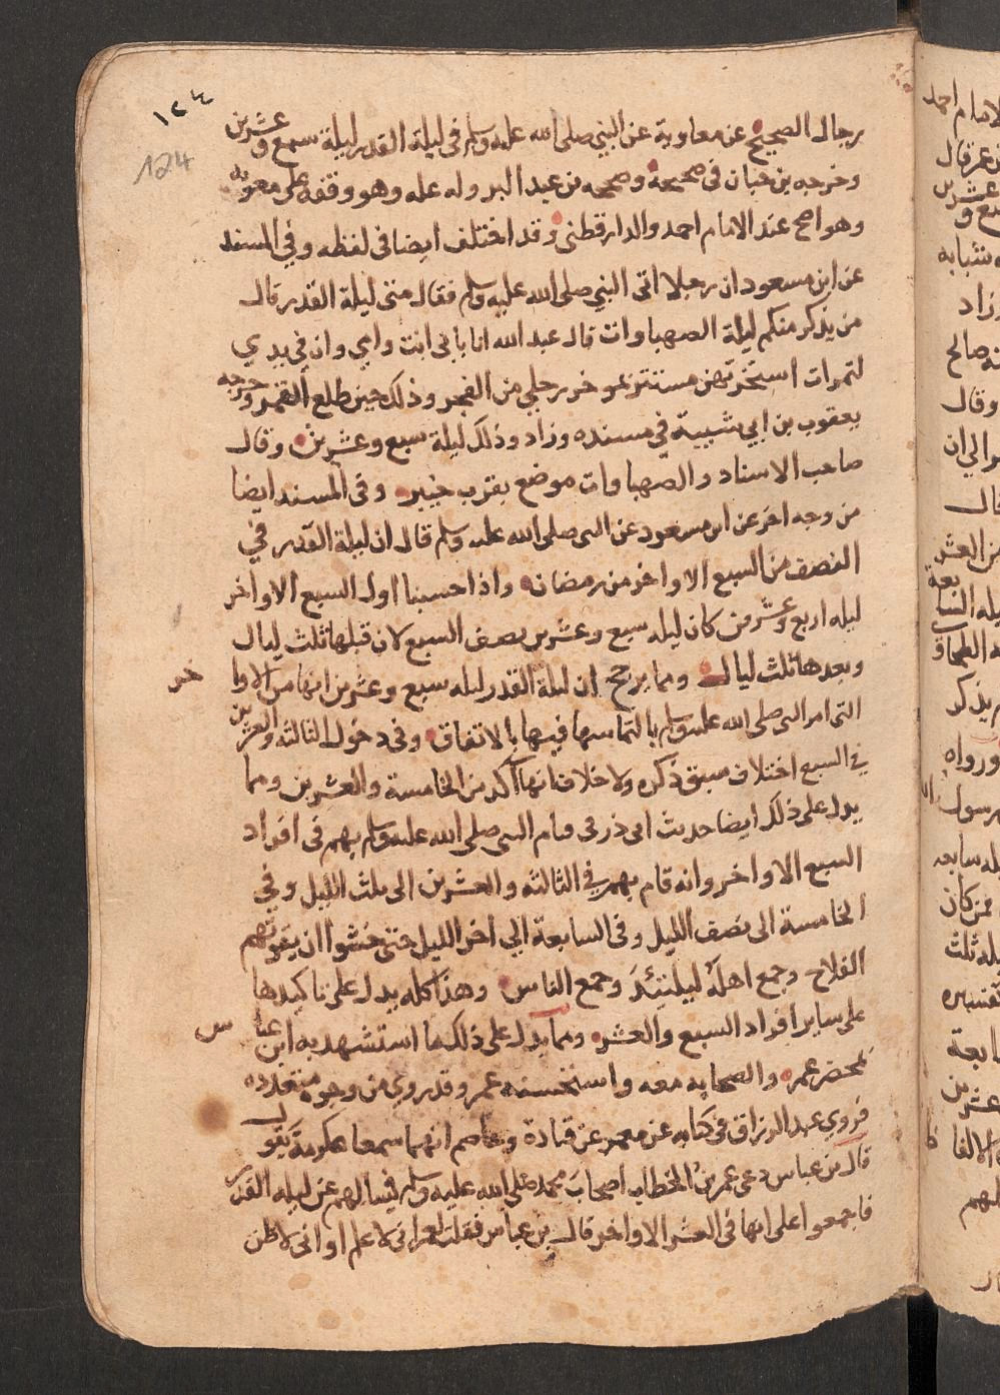 ١٢٤
124
برجال الصحيح عن معاوية عن النبي صلى الله عليه وسلم في ليلة القدر ليلة سبع وعشرين
وخرجه بن حبان في صحيحه وصححه بن عبد البر وله علة وهو وقفه على معوية
وهو اصح عند الامام احمد والدارقطني وقد اختلف ايضا في لفظه وفي المسند
عن ابن مسعود ان رجلا اتى النبي صلى الله عليه وسلم فقال متى ليلة القدر قال
من يذكر منكم ليلة الصهباوات قال عبد الله انا بابي انت وامي وان في يدي
لتمرات استحر بهن مستتر بموخر رحلي من الفجر وذلك حين طلع القمر وخرجه
يعقوب بن ابي شيبة في مسنده وزاد وذلك ليلة سبع وعشرين وقال
صاحب الاسناد والصهباوات موضع بقرب خيبر وفي المسند ايضا
من وجه اخر عن ابن مسعود عن النبي صلى الله عليه وسلم قال ان ليلة القدر في
النصف من السبع الاواخر من رمضان واذا حسبنا اول السبع الاواخر
ليله اربع وعشرين كان ليله سبع وعشرين نصف السبع لان قبلها ثلث ليال
وبعدها ثلث ليال ومما يرجح ان ليلة القدر ليله سبع وعشرين انها من الاوا
خر
التي امر النبي صلى الله عليه وسلم بالتماسها فيها بالاتفاق وفي دخول الثالثه والعشرين
في السبع اختلاف سبق ذكره ولا خلاف انها آكد من الخامسة والعشرين ومما
يدل على ذلك ايضا حديث ابي ذر في قيام النبي صلى الله عليه وسلم بهم في افراد
السبع الاواخر وانه قام بهم في الثالثه والعشرين الى ثلث الليل وفي
الخامسة الى نصف الليل وفي السابعة الي اخر الليل حتى خشوا ان يفوتهم
الفلاح وجمع اهله ليلتئذ وجمع الناس وهذا كله يدل على تاكيدها
على ساير افراد السبع والعشر ومما يدل على ذلك ما استشهد به ابن عبا
س
بمحضر عمر والصحابه معه واستحسنه عمر وقد روي من وجوه متعدده
فروي عبد الرزاق في كتابه عن معمر عن قتادة وعاصم انهما سمعا عكرمة يقول
قال بن عباس دعى عمر بن الخطاب اصحاب محمد صلى الله عليه وسلم فسالهم عن ليله القدر
فاجمعوا على انها في العشر الاواخر قال بن عباس فقلت لعمر اني لاعلم او اني لاظن